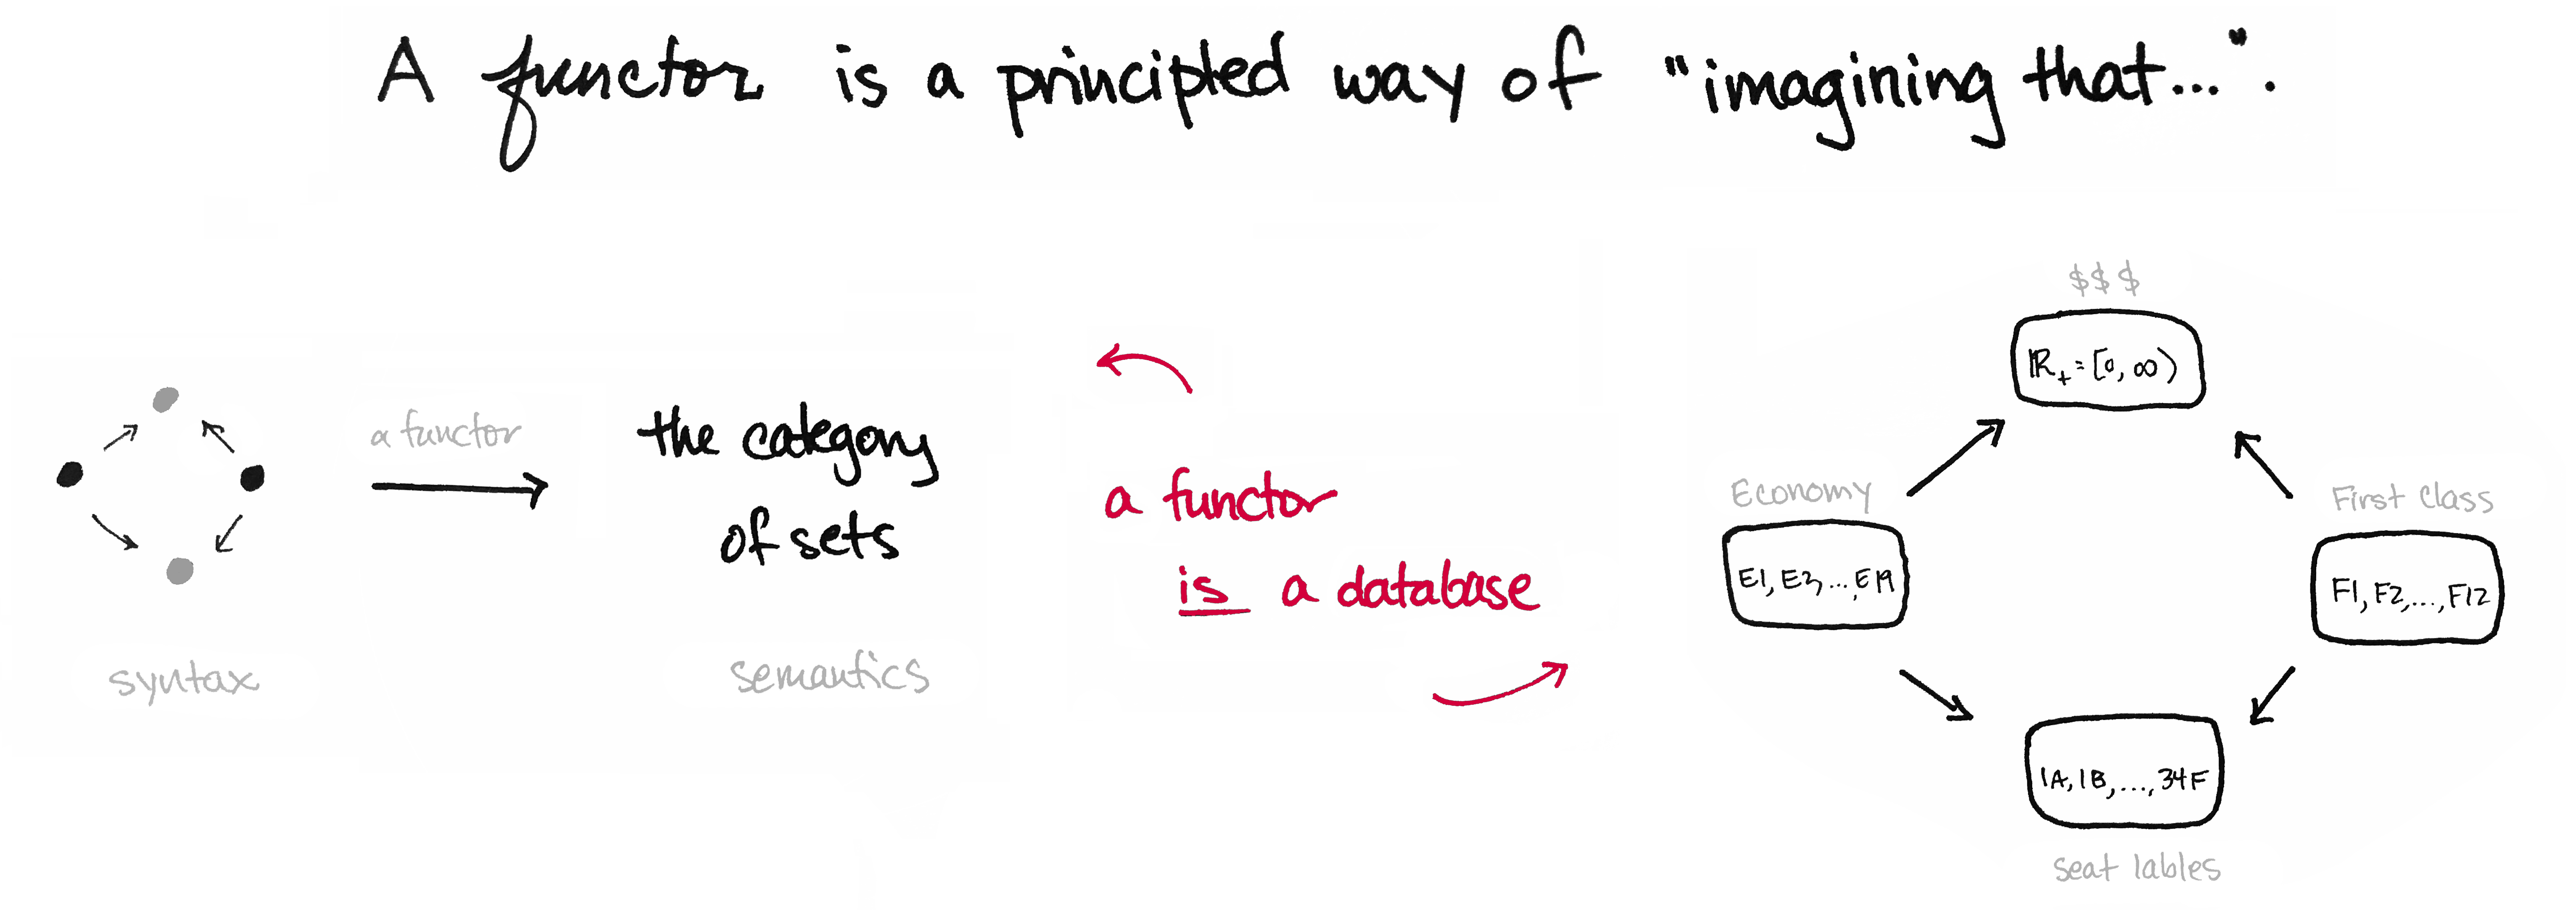 A functor is a principled way of "imagining that...".
a functor
the category
of sets
syntax
semantics
a functor
is a database
$$$
ℝ₊=[0,∞)
Economy
E1, E2,...,E19
First class
F1, F2,..., F12
1A, 1B,..., 34F
seat lables